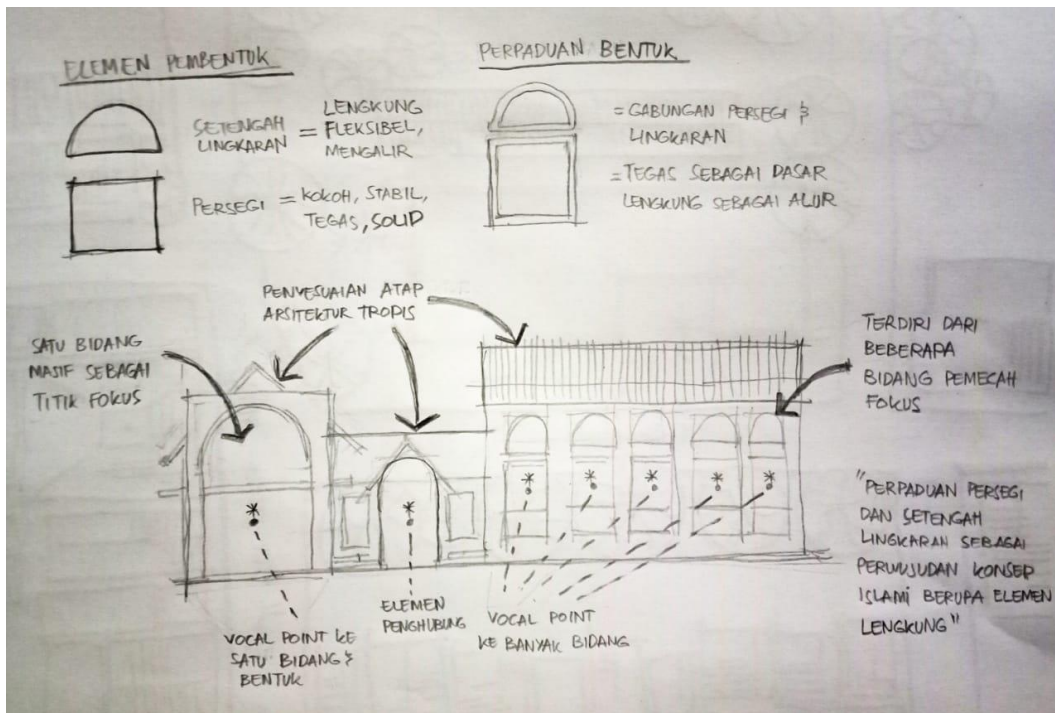 ELEMEN PEMBENTUK
SETENGAH
LINGKARAN
= LENGKUNG
FLEKSIBEL,
MENGALIR
PERSEGI = KOKOH, STABIL,
TEGAS, SOLID
PERPADUAN BENTUK
= GABUNGAN PERSEGI &
LINGKARAN
= TEGAS SEBAGAI DASAR
LENGKUNG SEBAGAI ALUR
PENYESUAIAN ATAP
ARSITEKTUR TROPIS
SATU BIDANG
MASIF SEBAGAI
TITIK FOKUS
TERDIRI DARI
BEBERAPA
BIDANG PEMECAH
FOKUS
"PERPADUAN PERSEGI
DAN SETENGAH
LINGKARAN SEBAGAI
PERWUJUDAN KONSEP
ISLAMI BERUPA ELEMEN
LENGKUNG"
VOCAL POINT KE
SATU BIDANG &
BENTUK
ELEMEN
PENGHUBUNG
VOCAL POINT
KE BANYAK BIDANG